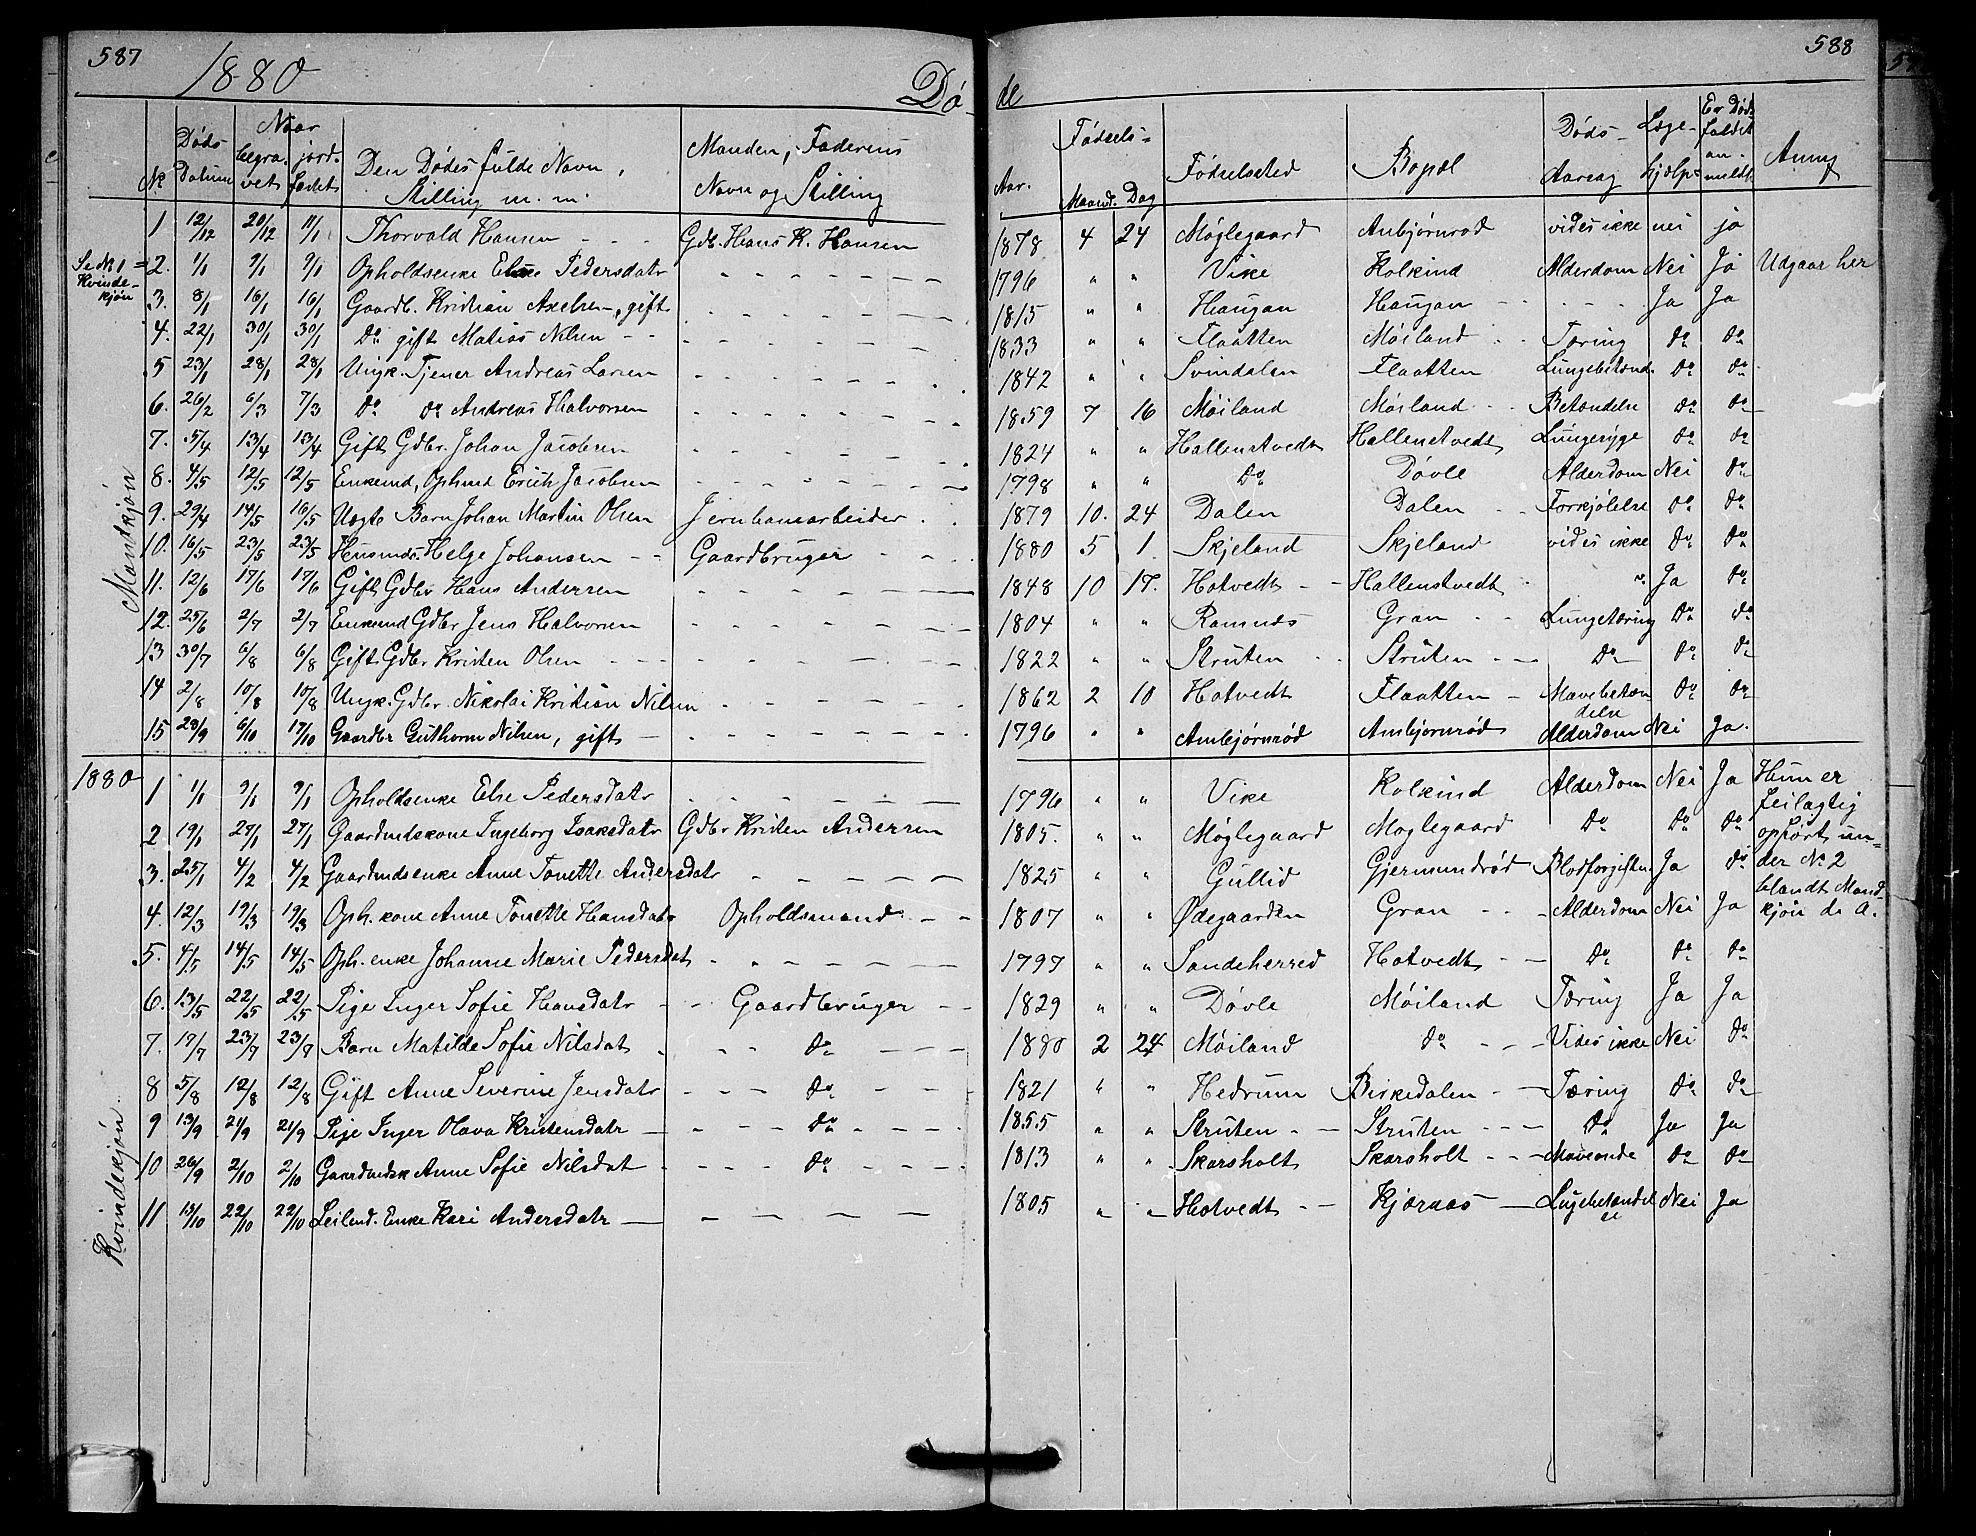 587
1880
Dø
de
588
No
Døds Datum
Naar
begra-vet
jord-fæstet
Den Dødes fulde Navn, Stilling m. m.
Manden, Faderens Navn og Stilling
Fødsels-
Aar.
Maaned.
Dag
Fødselssted
Bopæl
Døds Aarsag
Læge-hjælp
Er Døds faldet an-meldt.
Anmg
Mandkjøn
1 12/12 20/12 11/1 Thorvald Hansen - - - Gdb. Hans K. Hansen 1878 4 24 Møglegaard Anbjørnrød vides ikke nei ja
Se No 1 Kvinde-kjøn =2. 1/1 9/1 9/1 Opholdsenke Else Pedersdatr 1796 " " Vike Kolkind Alderdom Nei Ja Udgaar her
3. 8/1 16/1 16/1 Gaardb. Kristian Axelsen, gift 1815 " " Haugan Haugan - - - Ja Ja
4. 22/1 30/1 30/1 Do gift Matias Nilsen 1833 " " Flaatten Møiland Tæring do do
5 23/1 28/1 28/1 Ungk. Tjener Andreas Larsen 1842 " " Svindalen Flaatten Lungebetænd. do do
6. 26/2 6/3 7/3 Do do Andreas Halvorsen 1859 7 16 Møiland Møiland Betændelse do do
7. 5/4 13/4 13/4 Gift Gdbr. Johan Jacobsen 1824 " " Hallenstvedt Hallenstvedt Lungesyge do do
8. 4/5 12/5 12/5 Enkemd, Ophmd Erich Jacobsen 1798 " " Do Døvle Alderdom Nei do
9. 29/4 14/5 16/5 Uægte Barn Johan Martin Olsen Jernbanearbeider 1879 10. 24 Dalen Dalen Forkjølelse do do
10. 16/5 23/5 23/5 Husmds. Helge Johansen Gaardbruger 1880 5 1 Skjeland Skjeland vides ikke do do
11. 12/6 17/6 17/6 Gift Gdbr Hans Andersen 1848 10 17. Hotvedt Hallenstvedt " Ja do
12. 25/6 2/7 2/7 Enkemd Gdbr Jens Halvorsen 1804 " " Ramnes Gran Lungetæring do do
13 30/7 6/8 6/8 Gift Gdbr Kristen Olsen 1822 " " Struten Struten Do do do
14 2/8 10/8 10/8 Ungk. Gdbr. Nikolai Kristian Nilsen 1862 2 10 Hotvedt Flaatten Mavebetæn-delse do do
15 28/9 6/10 17/10 Gaardbr Guthorm Nilsen, gift 1796 " " Ambjørnrød Ambjørnrød Alderdom Nei Ja.
1880
Kvindekjøn.
1 1/1 9/1 9/1 Opholdsenke Else Pedersdatr 1796 " " Vike Kolkind Alderdom Nei Ja Hun er feilagtig opført un-der No 2 blandt Mand-kjøn d. A.
2 19/1 27/1 27/1 Gaardmdskone Ingeborg Isaksdatr Gdbr Kristen Andersen 1805. " " Møglegaard Moglegaard Do Do Do
3. 25/1 4/2 4/2 Gaardmdsenke Anne Tonette Andersdatr 1825 " " Gullid Gjermundrød Blodforgiftn. Ja do
4. 12/3 19/3 19/3 Oph. kone Anne Tonette Hansdatr Opholdsmand 1807 " " Ødegaarden Gran Alderdom Nei Ja
5. 4/5 14/5 14/5 Oph. enke Johanne Marie Pedersdat 1797 " " Sandeherred Hotvedt Do do do
6. 13/5 22/5 22/5 Pige Inger Sofie Hansdatr Gaardbruger 1829 " " Døvle Møiland Tæring Ja Ja
7. 17/7 23/7 23/7 Barn Matilde Sofie Nilsdat Do 1880 2 24 Møiland do Vides ikke Nei do
8 5/8 12/8 12/8 Gift Anne Severine Jensdatr Do 1821 " " Hedrum Birkedalen Tæring do do
9 13/9 21/9 21/9 Pige Inger Olava Kristensdatr Do 1855 " " Struten Struten Do Ja Ja
10 26/9 2/10 2/10 Gaardmdsk Anne Sofie Nilsdat Do 1813 " " Skarsholt Skarsholt Maveonde do do
11 15/10 22/10 22/10 Leilend. Enke Kari Andersdatr 1805 " " Hotvedt Kjærnaas Nei Ja